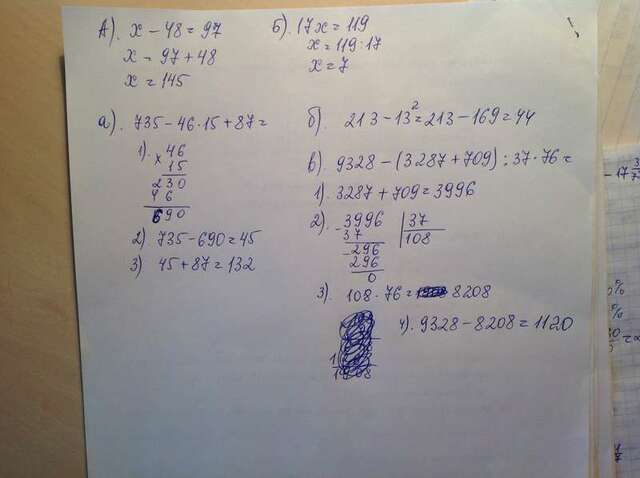 А). x - 48 = 97
x = 97 + 48
x = 145
Б). 17x = 119
x = 119 : 17
x = 7
а). 735 - 46 · 15 + 87 =
1). × 46
15
230
46
690
2) 735 - 690 = 45
3) 45 + 87 = 132
б). 213 - 13² = 213 - 169 = 44
в). 9328 - (3287 + 709) : 37 · 76 =
1). 3287 + 709 = 3996
2). - 3996 | 37
37 108
- 296
296
0
3). 108 · 76 = 8208
4). 9328 - 8208 = 1120
- 17 3/7